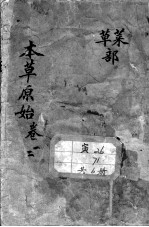 菜部
草
本草原始卷二
寅 26
71
共6冊